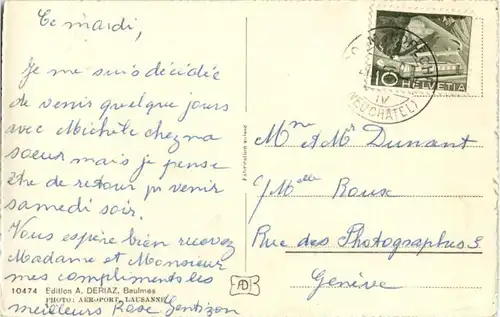 Ce mardi,
Je me suis décidée
de venir quelque jours
avec Michèle chez ma
soeur mais je pense
être de retour venir
samedi soir.
Vous espère bien recevez
Madame et Monsieur
mes compliments les
meilleurs Rose Gentizon
10474 Edition A. DERIAZ, Baulmes
PHOTO: AÉROPORT, LAUSANNE
Fabrication suisse
AD
10 HELVETIA
IV
(NEUCHÂTEL)
Mme et Mr Dunant
c/Melle Roux
Rue des Photographes 3
Genève